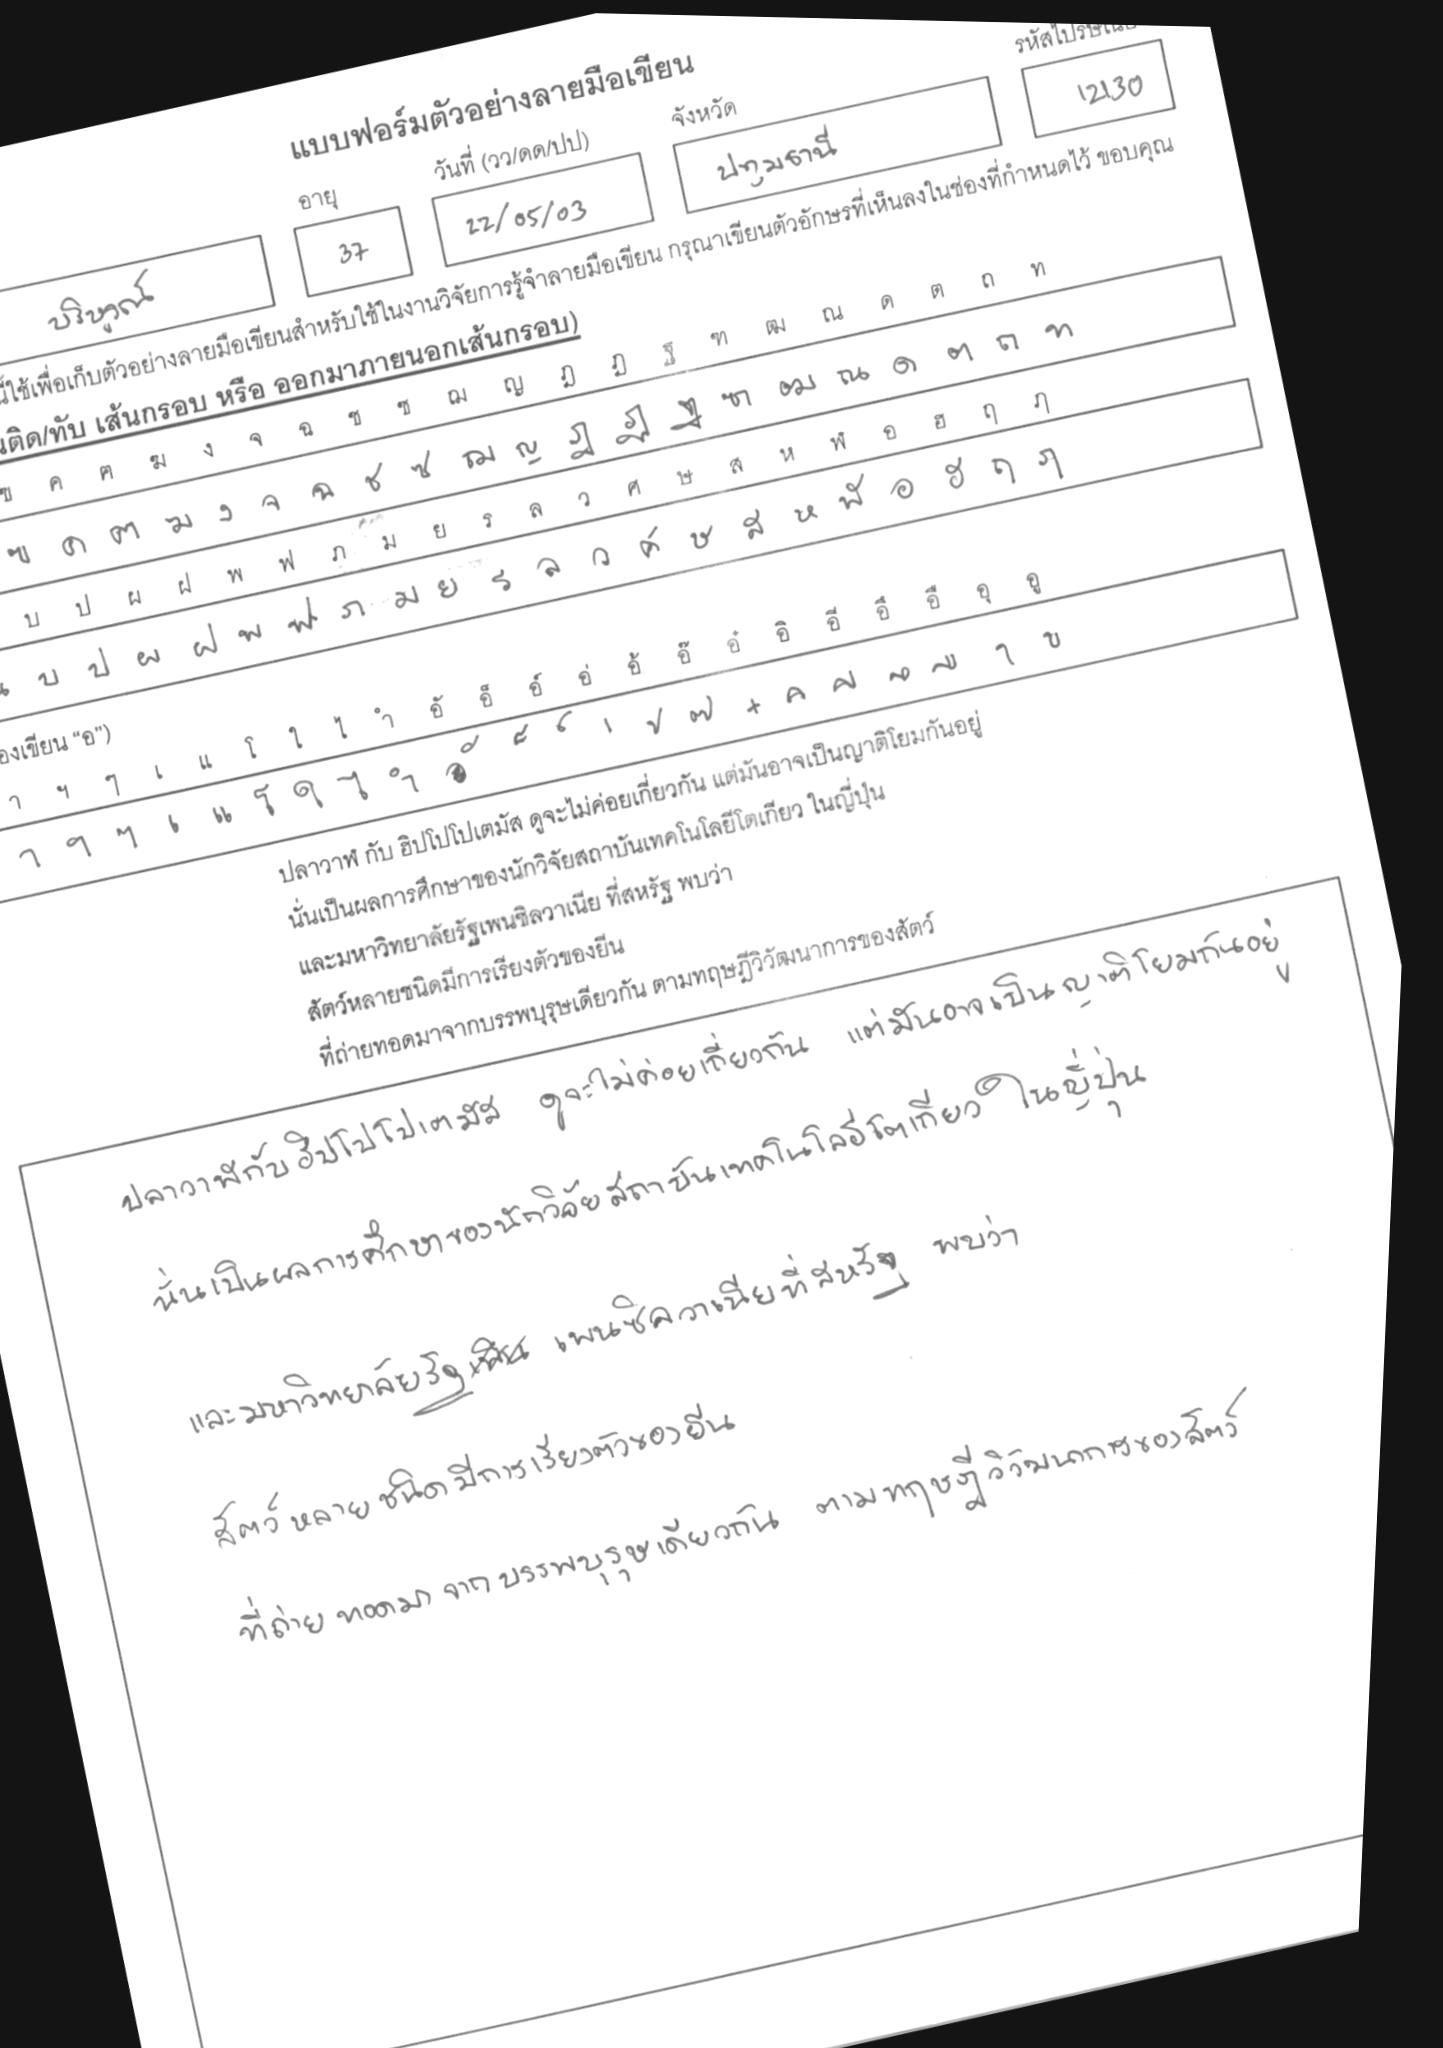 แบบฟอร์มตัวอย่างลายมือเขียน
อายุ วันที่ (วว/ดด/ปป) จังหวัด
บริบูรณ์ 37 22/05/03 ปทุมธานี 12130
ใช้เพื่อเก็บตัวอย่างลายมือเขียนสำหรับใช้ในงานวิจัยการรู้จำลายมือเขียน กรุณาเขียนตัวอักษรที่เห็นลงในช่องที่กำหนดไว้ ขอบคุณ
ติด/ทับ เส้นกรอบ หรือ ออกมาภายนอกเส้นกรอบ)
ข ค ฅ ฆ ง จ ฉ ช ซ ฌ ญ ฎ ฏ ฐ ฑ ฒ ณ ด ต ถ ท
ฃ ค ฅ ฆ ง จ ฉ ช ซ ฌ ญ ฎ ฏ ฐ ฑ ฒ ณ ด ต ถ ท
บ ป ผ ฝ พ ฟ ภ ม ย ร ล ว ศ ษ ส ห ฬ อ ฮ ฤ ฦ
น บ ป ผ ฝ พ ฟ ภ ม ย ร ล ว ศ ษ ส ห ฬ อ ฮ ฤ ฦ
องเขียน “อ”)
า ฯ ๆ เ แ โ ใ ไ ำ อั อ็ อ์ อ่ อ้ อ๊ อ๋ อิ อี อึ อื อุ อู
า ฯ ๆ เ แ โ ใ ไ ำ
ปลาวาฬ กับ ฮิปโปโปเตมัส ดูจะไม่ค่อยเกี่ยวกัน แต่มันอาจเป็นญาติโยมกันอยู่
นั่นเป็นผลการศึกษาของนักวิจัยสถาบันเทคโนโลยีโตเกียว ในญี่ปุ่น
และมหาวิทยาลัยรัฐเพนซิลวาเนีย ที่สหรัฐ พบว่า
สัตว์หลายชนิดมีการเรียงตัวของยีน
ที่ถ่ายทอดมาจากบรรพบุรุษเดียวกัน ตามทฤษฎีวิวัฒนาการของสัตว์
ปลาวาฬกับ ฮิปโปโปเตมัส ดูจะไม่ค่อยเกี่ยวกัน แต่มันอาจเป็นญาติโยมกันอยู่
นั่นเป็นผลการศึกษาของนักวิจัยสถาบันเทคโนโลยีโตเกียว ในญี่ปุ่น
และมหาวิทยาลัยรัฐ เพนซิลวาเนียที่สหรัฐ พบว่า
สัตว์หลายชนิดมีการเรียงตัวของยีน
ที่ถ่ายทอดมาจากบรรพบุรุษเดียวกัน ตามทฤษฎีวิวัฒนาการของสัตว์